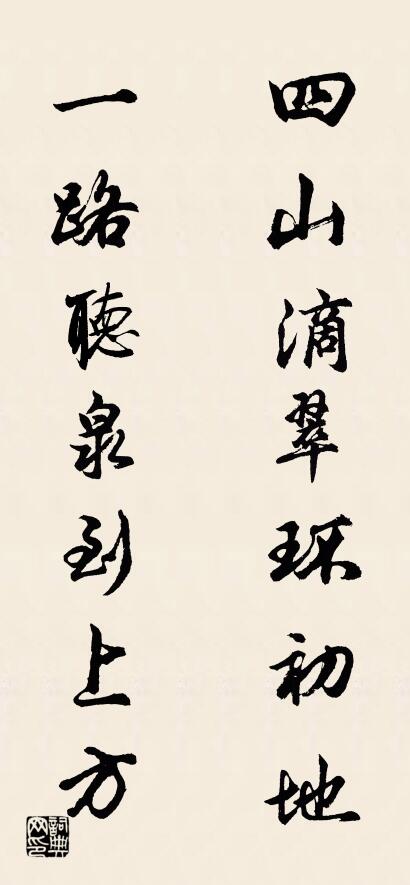 四山滴翠环初地
一路聽泉到上方
詞典网印